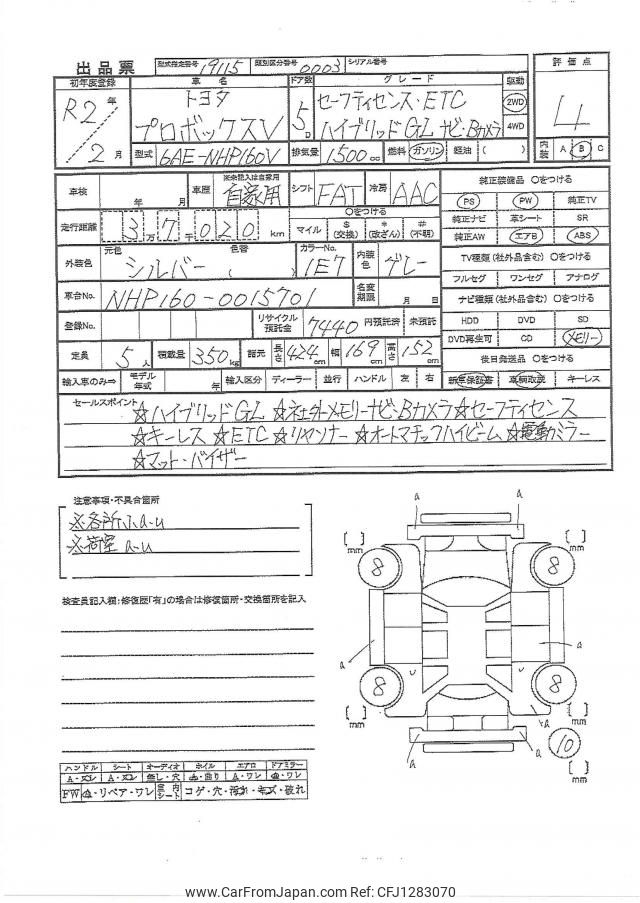 出品票 型式指定番号 19115 類別区分番号 0003 シリアル番号
初年度登録 車名 ドア数 グレード 駆動 評価点
R2年 トヨタ 5D セーフティセンス・ETC 2WD 4
2月 プロボックスV ハイブリッドGL ナビ・Bカメラ 4WD
型式 6AE-NHP160V 排気量 1500cc 燃料 ガソリン 軽油 ( ) 内装 A B C
車検 年 月 車歴 ※未記入は自家用 自家用 シフト FAT 冷房 AAC 純正装備品 ○をつける
PS PW 純正TV
走行距離 3万7千020km ○をつける マイル $(交換) *(改ざん) #(不明) 純正ナビ 革シート SR
純正AW エアB ABS
外装色 元色 シルバー 色替 ( ) カラーNo. 1E7 内装色 グレー TV種類(社外品含む) ○をつける
フルセグ ワンセグ アナログ
車台No. NHP160-0015701 名変期限 月 日 ナビ種類(社外品含む) ○をつける
登録No. リサイクル預託金 7440 円預託済 未預託 HDD DVD SD
DVD再生可 CD メモリー
定員 5人 積載量 350kg 諸元 長さ 424cm 幅 169cm 高さ 152cm 後日発送品 ○をつける
輸入車のみ⇒ モデル年式 年 輸入区分 ディーラー 並行 ハンドル 左 右 新車保証書 車輌取説 キーレス
セールスポイント ☆ハイブリッドGL ☆社外メモリーナビ・Bカメラ☆セーフティセンス
☆キーレス ☆ETC ☆リヤソナー ☆オートマチックハイビーム ☆電動ミラー
☆マット・バイザー
注意事項・不具合箇所
※各所小a-u
※荷室a-u
検査員記入欄:修復歴「有」の場合は修復箇所・交換箇所を記入
a a
[ ]mm 8 8 [ ]mm
a a
[ ]mm 8 8 [ ]mm
a a a
10 [ ]mm
ハンドル シート オーディオ ホイル エアロ ドアミラー
A・スレ A・スレ 無し・穴 曲り A・ワレ ワレ
FW リペア・ワレ 室内シート コゲ・穴・汚れ・キズ・破れ
www.CarFromJapan.com Ref: CFJ1283070